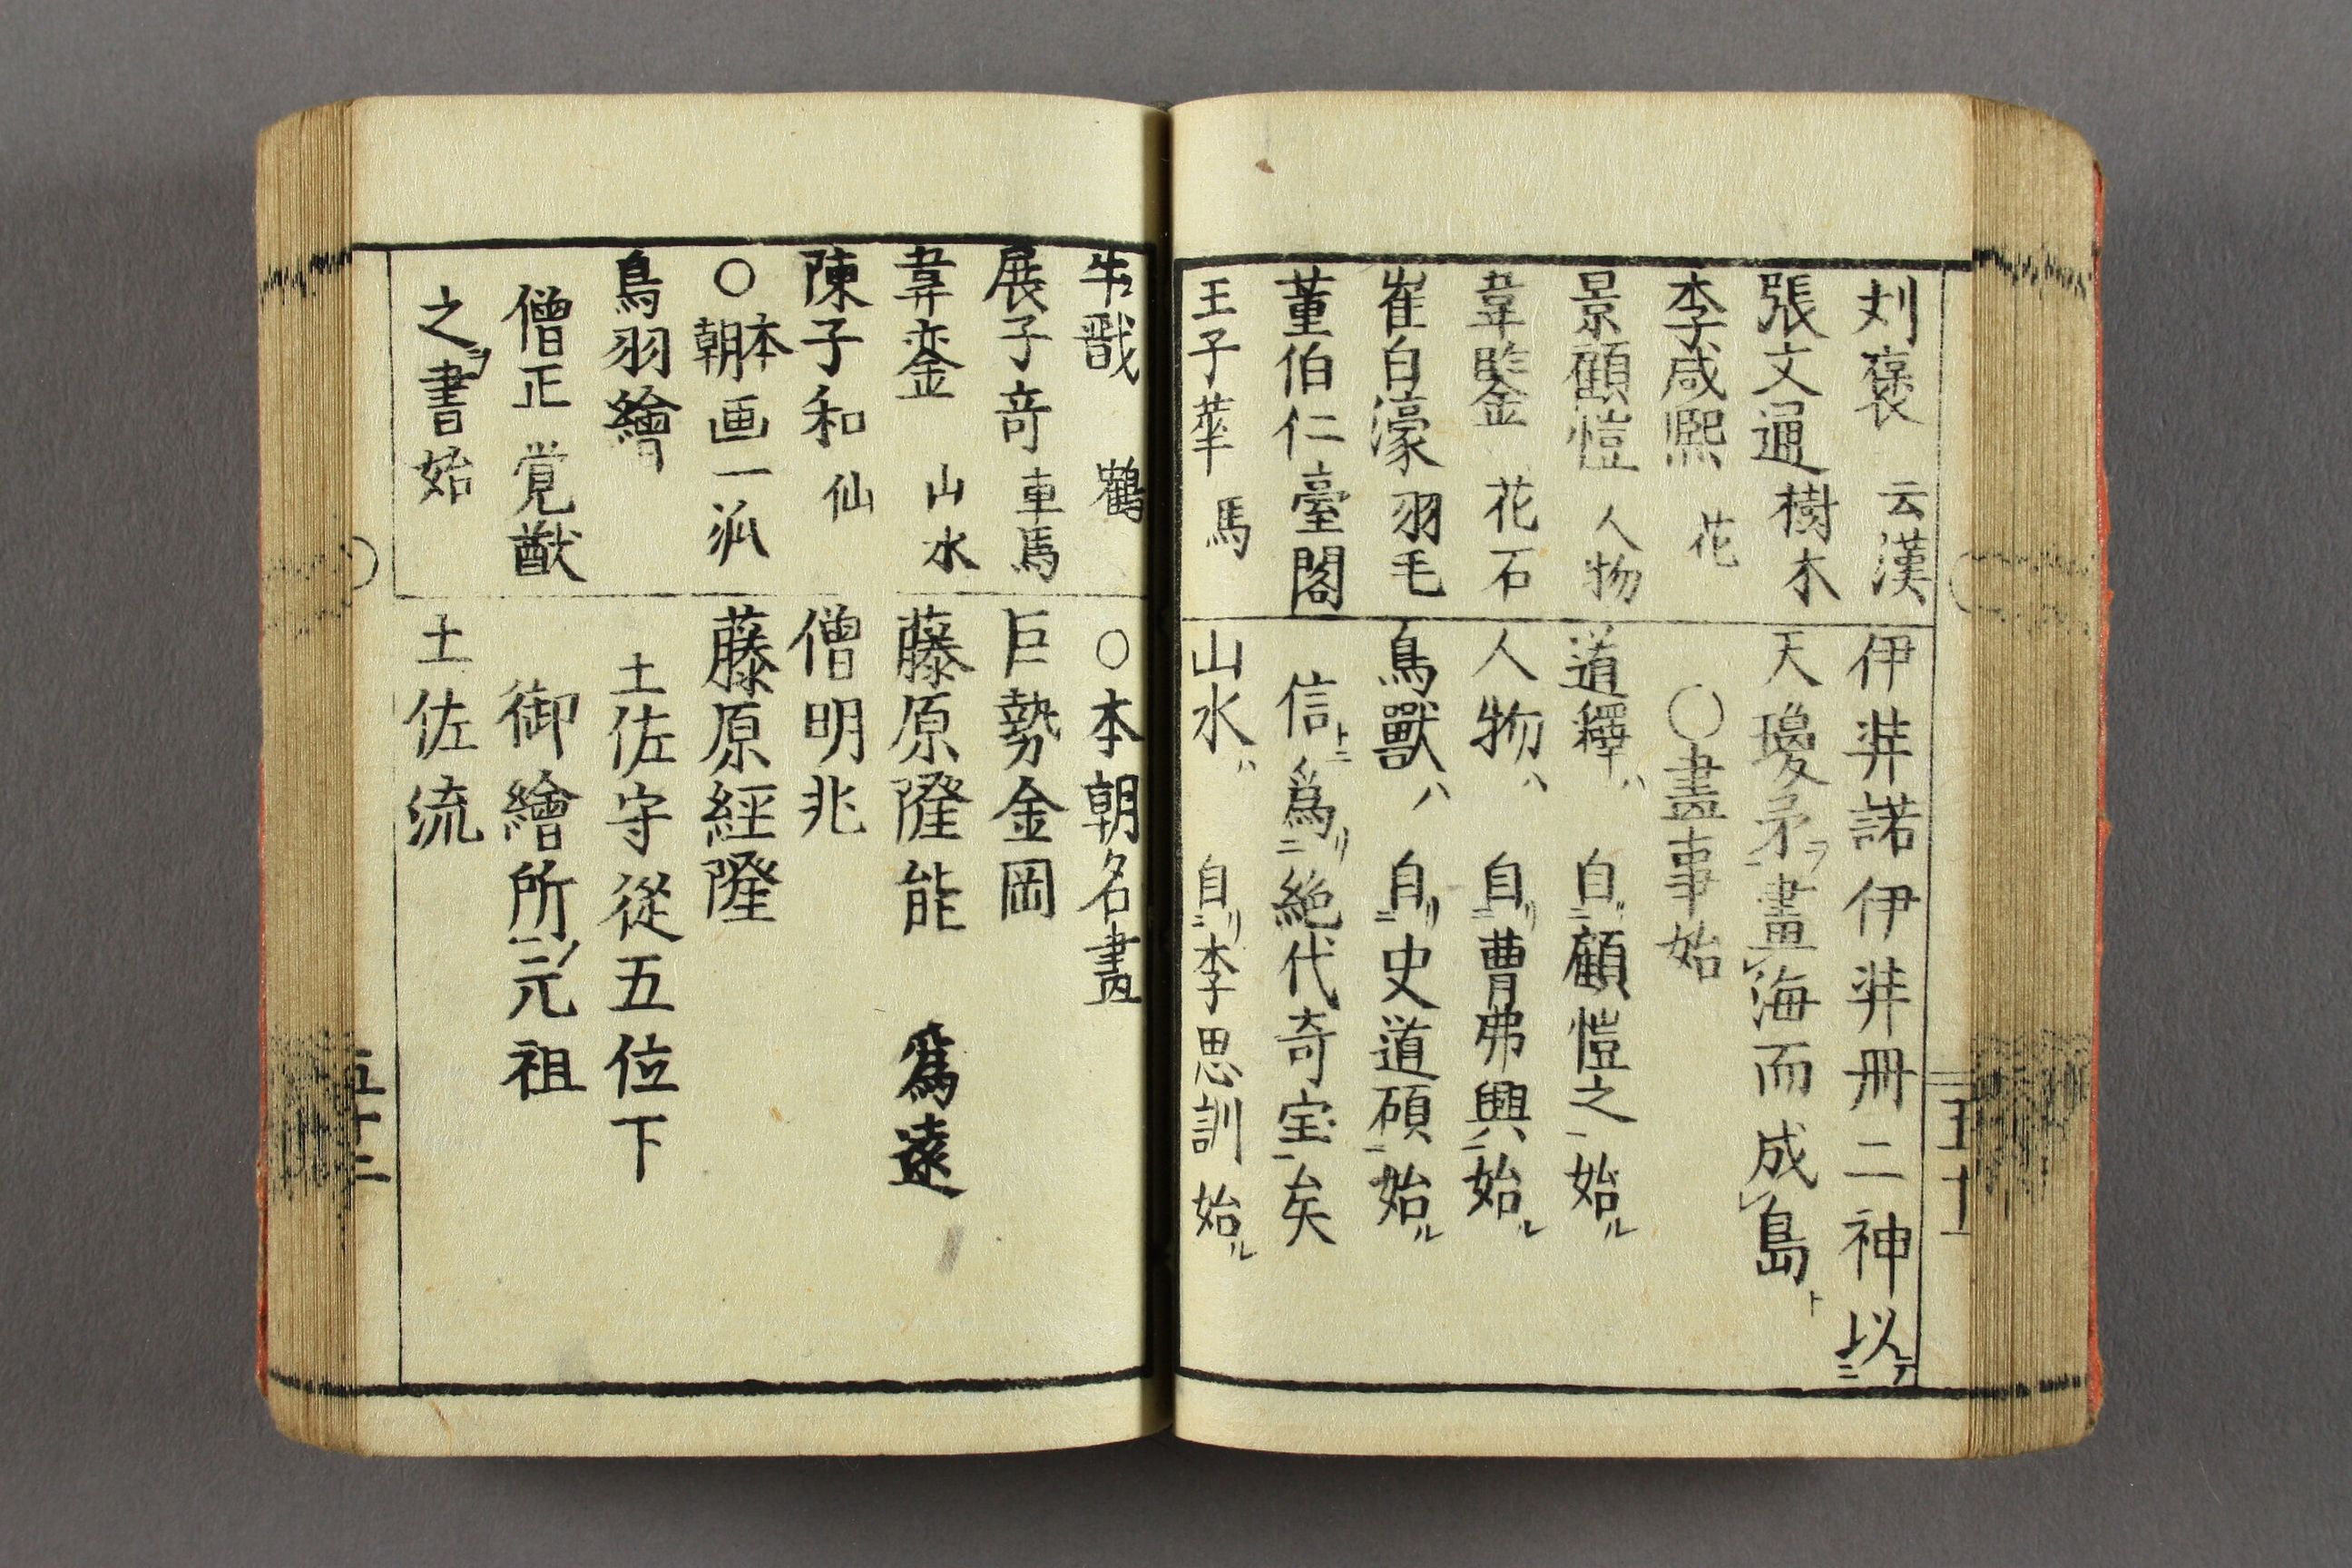 刘褒　云漢
張文通　樹木
李咸熙　花
景顧愷　人物
韋鑒　花石
崔白濠　羽毛
董伯仁　臺閣
王子華　馬
伊弉諾伊弉冊二神以テ二
天瓊矛ヲ一畫レ海而成レ島ト
○畫事始
道釋ハ　自リ二顧愷之一始ル
人物ハ　自リ二曹弗興一始ル
鳥獸ハ　自リ二史道碩一始ル
信ト二爲リ二絶代奇宝一矣
山水ハ　自リ二李思訓始ル
五十一
牛戩　鶴
展子奇　車馬
韋鑾　山水
陳子和　仙
○本朝画一派
鳥羽繪
僧正　覚猷
之ヲ書始
○本朝名畫
巨勢金岡
藤原隆能　爲遠
僧明兆
藤原經隆
土佐守從五位下
御繪所ノ二元祖
土佐流
五十二